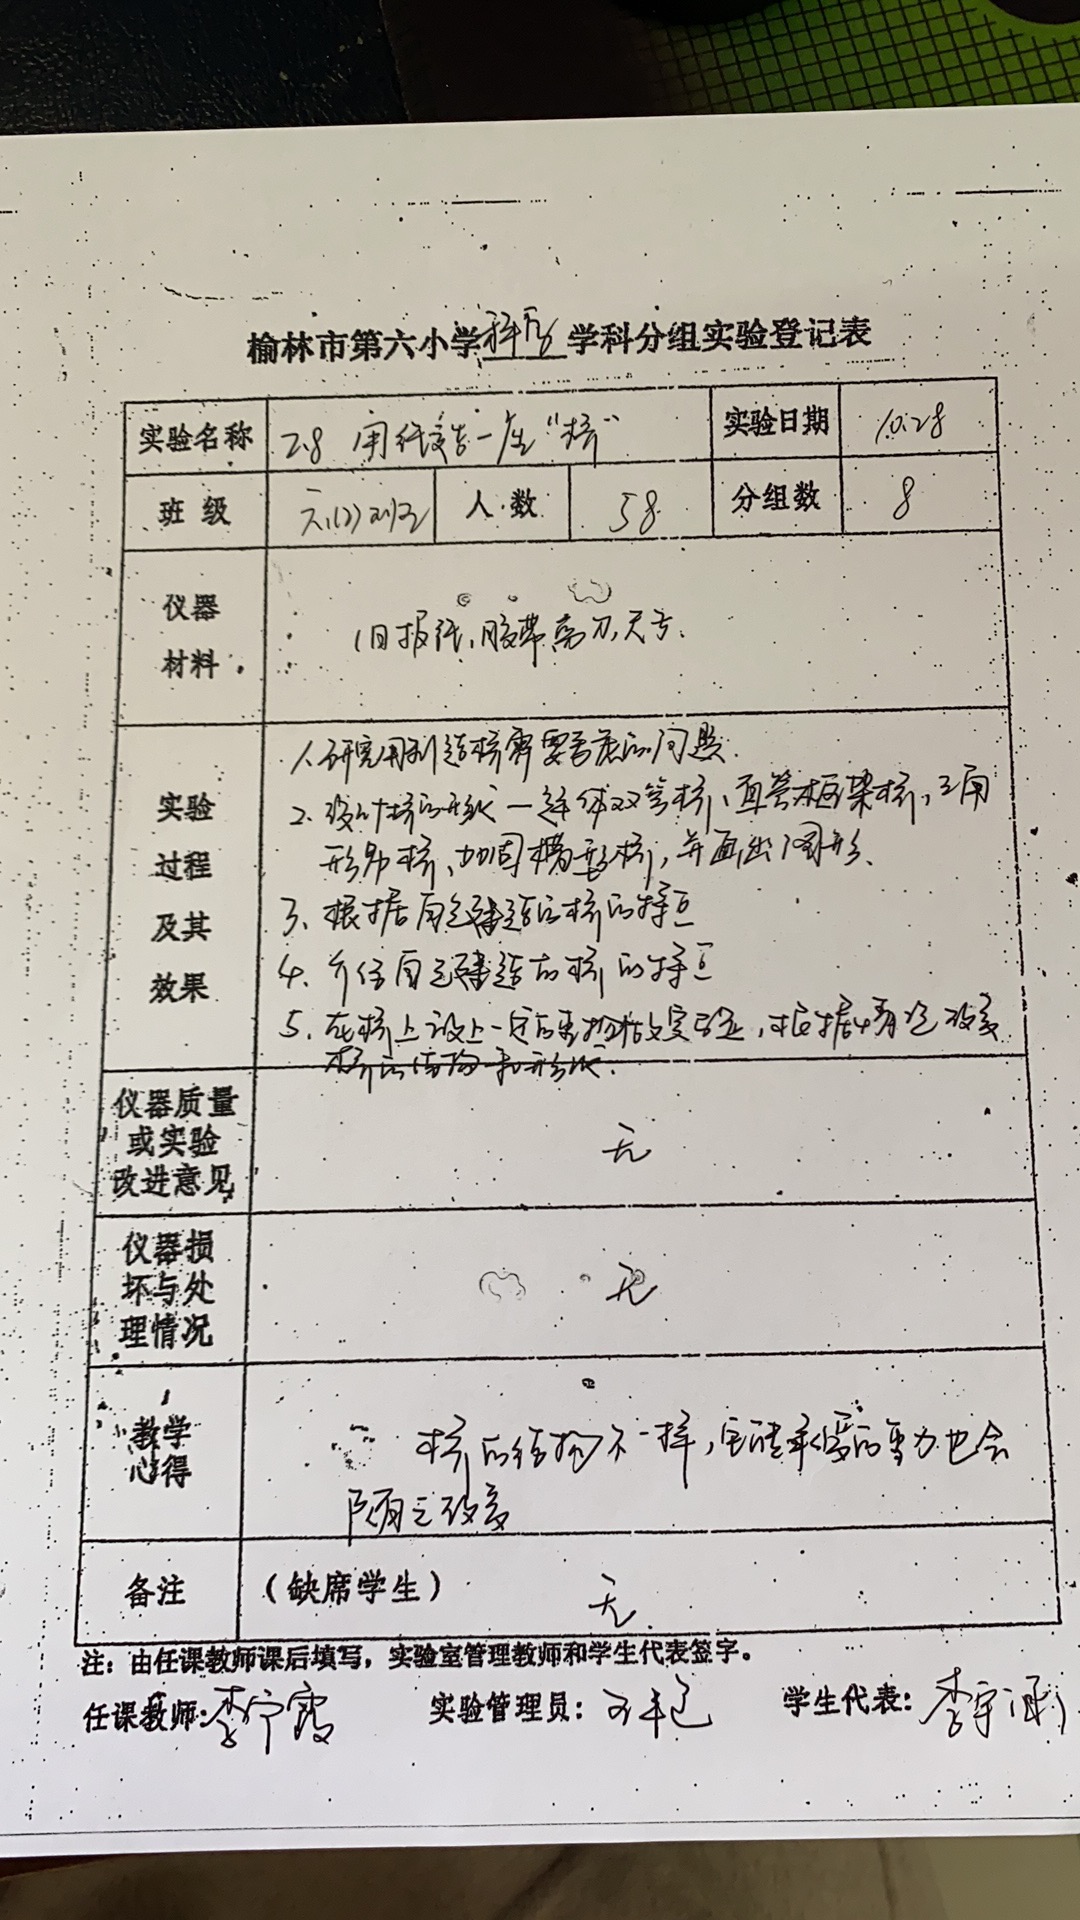 榆林市第六小学科学学科分组实验登记表
实验名称 2.8 用纸造一座“桥” 实验日期 10.28
班级 六(2)班 人数 58 分组数 8
仪器
材料
旧报纸、胶带剪刀、尺等.
实验
过程
及其
效果
1、研究用纸造桥需要考虑的问题.
2、设计桥的形状—连体双管桥、直管框架桥、三角
形吊桥、加固槽形桥，并画出图形、
3、根据自己建造的桥的特点
4、介绍自己建造的桥的特点
5、在桥上放上一定的重物做实验，根据情况改变
桥的结构和形状.
仪器质量
或实验
改进意见
无
仪器损
坏与处
理情况
无
教学
心得
桥的结构不一样，它能承受的重力也会
随之改变
备注 （缺席学生） 无
注：由任课教师课后填写，实验室管理教师和学生代表签字。
任课教师:李宁霞 实验管理员： 学生代表：李宇